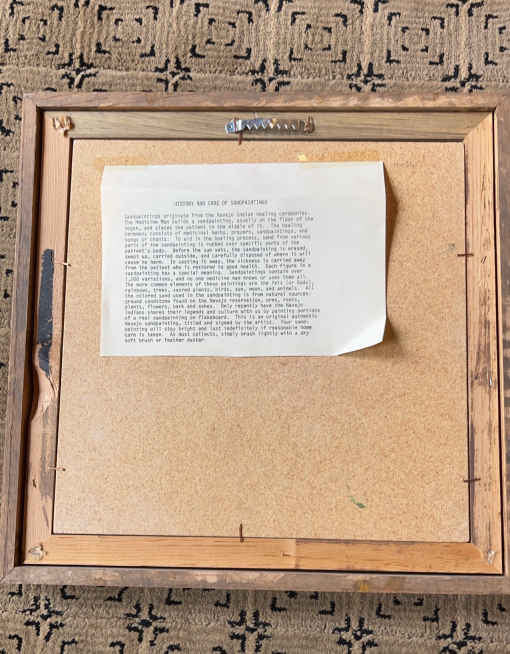 HISTORY AND CARE OF SANDPAINTINGS
Sandpaintings originate from the Navajo Indian healing ceremonies.
The Medicine Man builds a sandpainting, usually on the floor of the
hogan, and places the patient in the middle of it. The healing
ceremony consists of medicinal herbs, prayers, sandpaintings, and
songs or chants. To aid in the healing process, sand from various
parts of the sandpainting is rubbed over specific parts of the
patient's body. Before the sun sets, the sandpainting is erased,
swept up, carried outside, and carefully disposed of where it will
cause no harm. In casting it away, the sickness is carried away
from the patient who is restored to good health. Each figure in a
sandpainting has a special meaning. Sandpaintings contain over
1,000 variations, and no one medicine man knows or uses them all.
The more common elements of these paintings are the Yeis (or Gods),
rainbows, trees, sacred plants, birds, sun, moon, and animals. All
the colored sand used in the sandpainting is from natural sources:
ground sandstone found on the Navajo reservation, ores, roots,
plants, flowers, bark and ashes. Only recently have the Navajo
Indians shared their legends and culture with us by painting portions
of a real sandpainting on flakeboard. This is an original authentic
Navajo sandpainting, titled and signed by the artist. Your sand-
painting will stay bright and last indefinitely if reasonable home
care is taken. As dust collects, simply brush lightly with a dry
soft brush or feather duster.